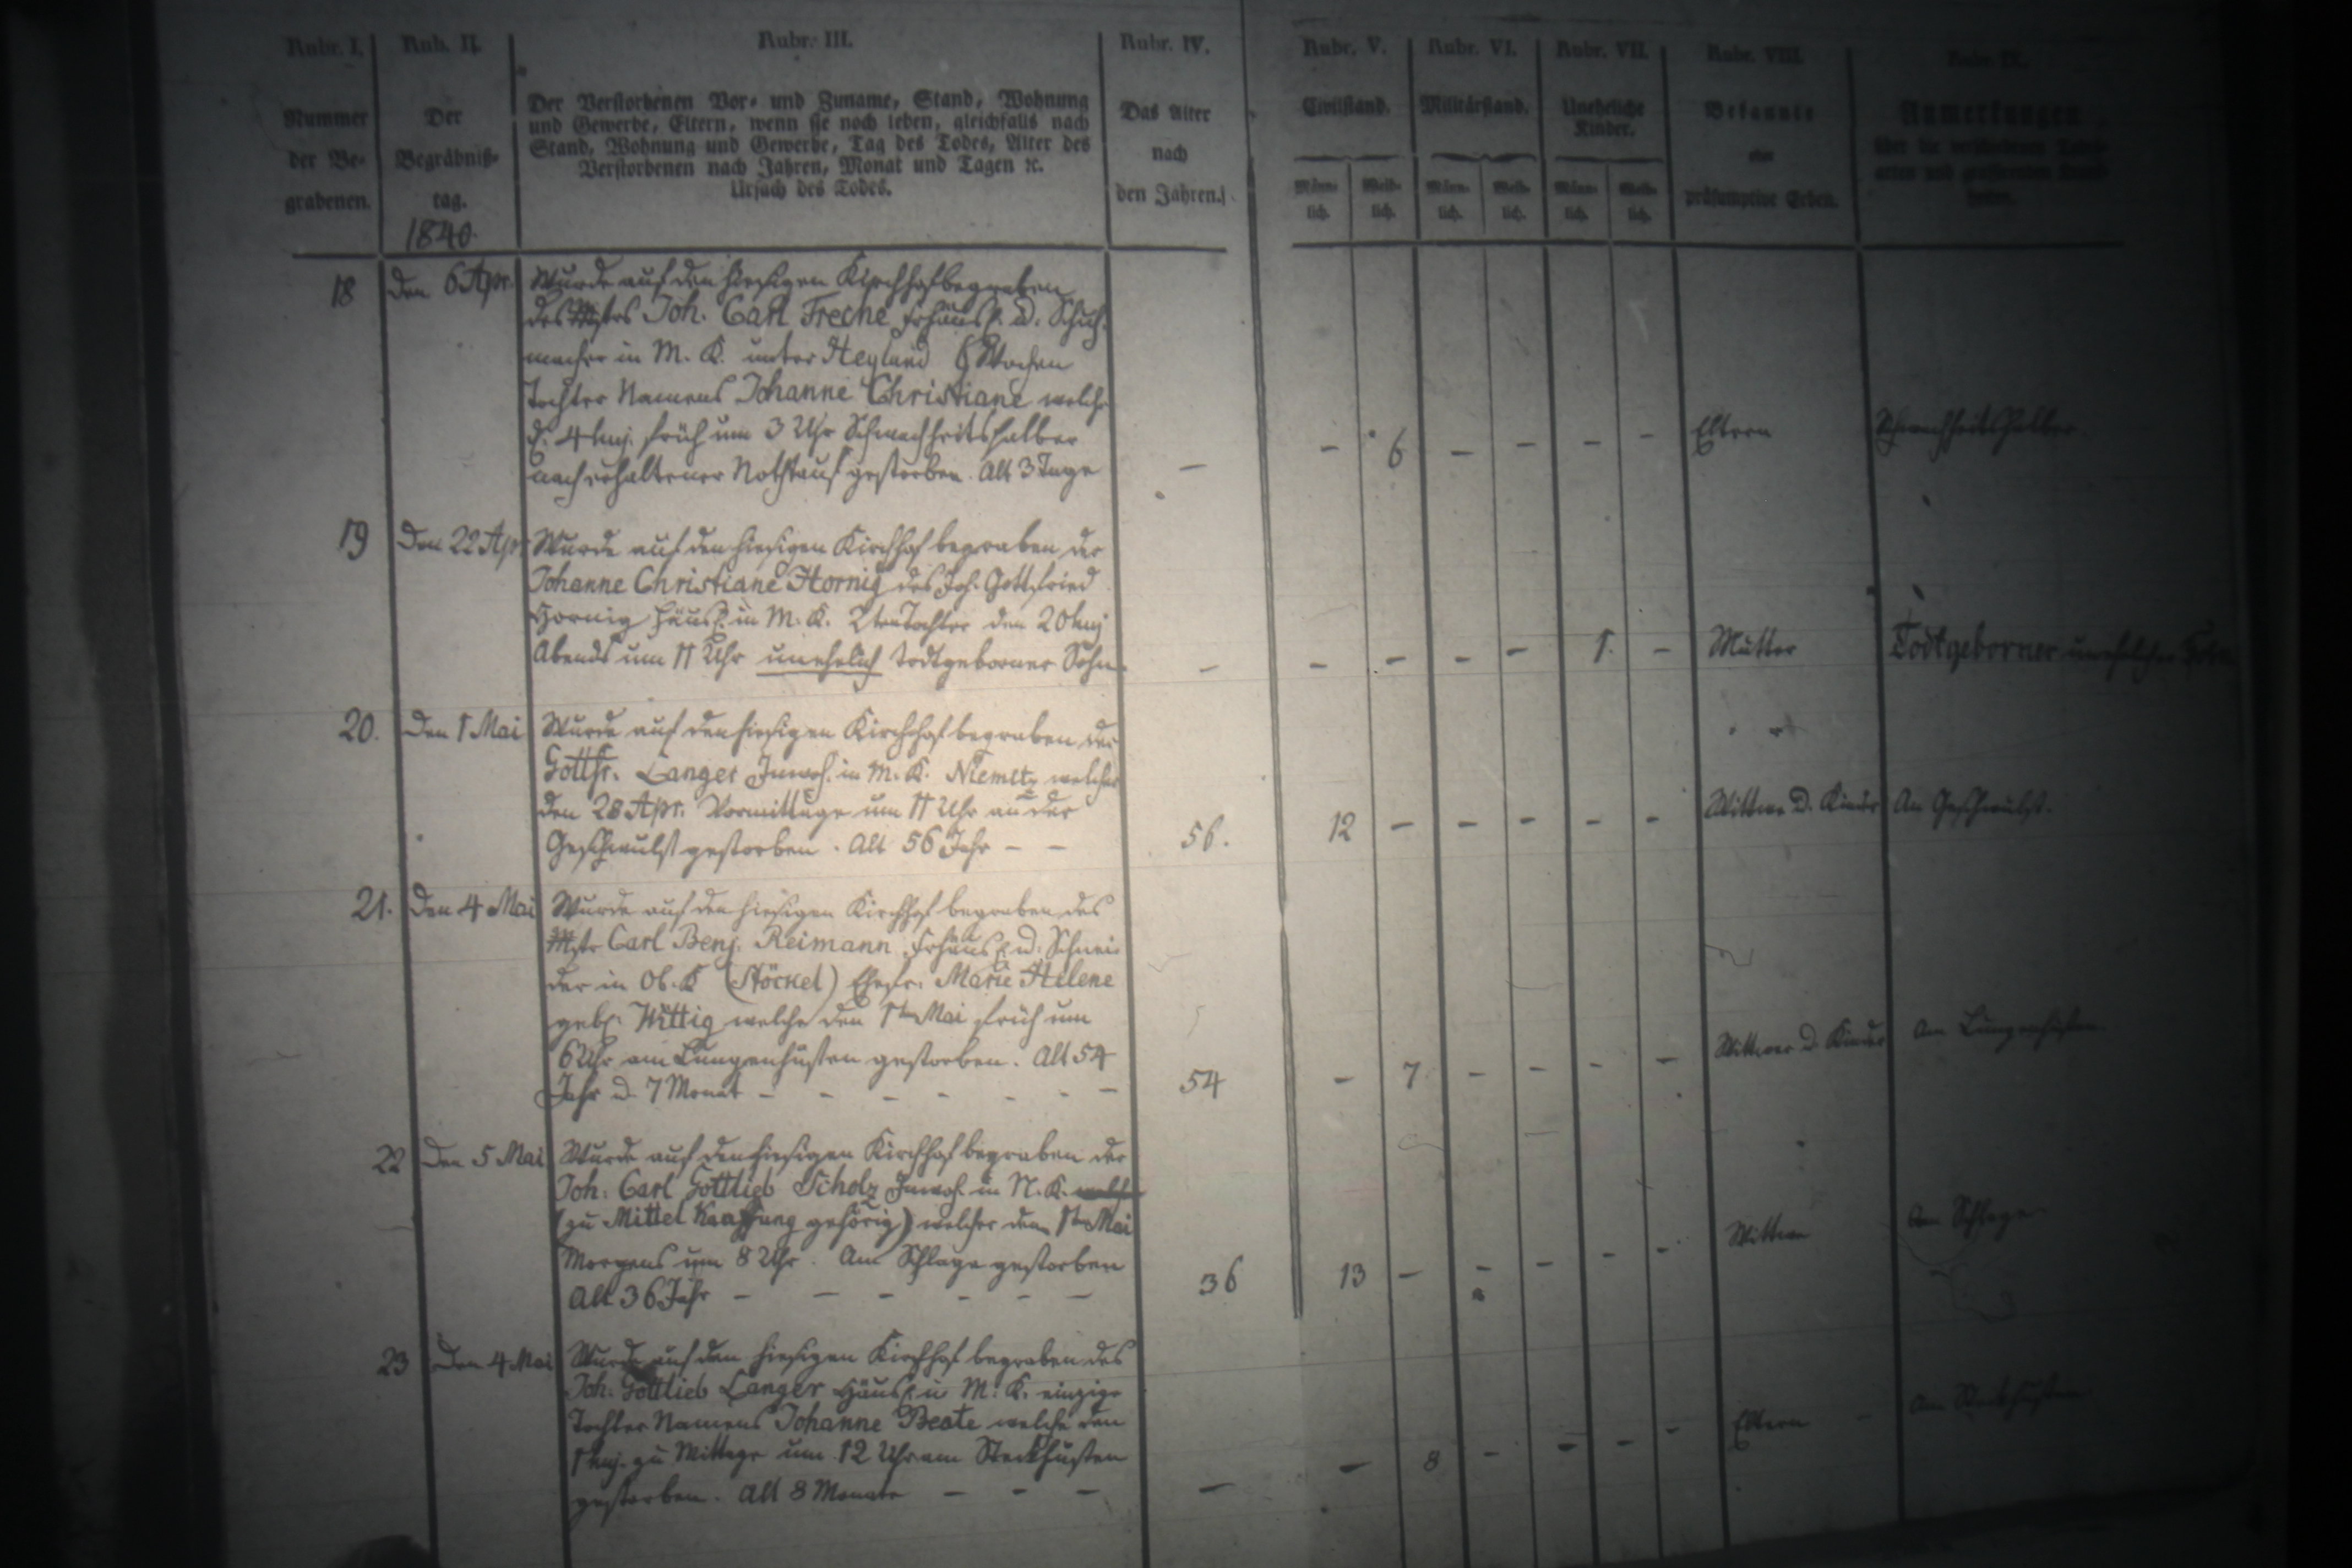 Rubr. I. Rub. II. Rubr. III. Rubr. IV. Rubr. V. Rubr. VI. Rubr. VII. Rubr. VIII. Rubr. IX.
Nummer der Be- grabenen.
Der Begräbniß- tag.
1840.
Der Verstorbenen Vor- und Zuname, Stand, Wohnung
und Gewerbe, Eltern, wenn sie noch leben, gleichfalls nach
Stand, Wohnung und Gewerbe, Tag des Todes, Alter des
Verstorbenen nach Jahren, Monat und Tagen ꝛc.
Ursach des Todes.
Das Alter nach den Jahren.
Civilstand. Militärstand. Uneheliche Kinder.
Männ- lich. Weib- lich. Männ- lich. Weib- lich. Männ- lich. Weib- lich.
Bekannte oder präsumptive Erben.
Anmerkungen
18 den 6 Apr. Wurde auf den hiesigen Kirchhof begraben
des Mstrs Joh. Carl Freche Frhäusl. u. Schuh-
macher in M. K. unter Heyland 6 Wochen
Tochter Namens Johanne Christiane welche
d. 4 huj. früh um 3 Uhr Schwachheitshalber
nach erhaltener Nothtauf gestorben. Alt 3 Tage — — 6 — — — — Eltern Schwachheitshalber.
19 Den 22 Apr Wurde auf den hiesigen Kirchhof begraben der
Johanne Christiane Hornig des Joh. Gottfried
Hornig Häusl. in M. K. 2te Tochter den 20 huj
Abends um 11 Uhr unehelich todtgeborner Sohn — — — — — 1. — Mutter Todtgeborner unehelicher Sohn
20. Den 1 Mai Wurde auf den hiesigen Kirchhof begraben der
Gottfr. Langer Inwoh. in M. K. Niemitz welcher
den 28 Apr. Vormittage um 11 Uhr an der
Geschwulst gestorben. Alt 56 Jahr — — 56. 12 — — — — — Wittwe u. Kinder An Geschwulst.
21. Den 4 Mai Wurde auf den hiesigen Kirchhof begraben des
Mstr Carl Benj. Reimann Frhäusl. u. Schnei-
der in Ob. K (Stöckel) Ehefr. Marie Helene
geb. Wittig welche den 1ten Mai früh um
6 Uhr am Lungenhusten gestorben. Alt 54
Jahr u. 7 Monat — — — — — — — 54 — 7 — — — — Wittwer u. Kinder Am Lungenhusten
22 Den 5 Mai Wurde auf den hiesigen Kirchhof begraben der
Joh. Carl Gottlieb Scholz Inwoh. in N. K.
(zu Mittel Kauffung gehörig) welcher den 1ten Mai
Morgens um 8 Uhr. Am Schlage gestorben
Alt 36 Jahr — — — — — — 36 13 — — — — — Wittwe Am Schlage
23 Den 4 Mai Wurde auf den hiesigen Kirchhof begraben des
Joh. Gottlieb Langer Häusl. in M. K. einzige
Tochter Namens Johanne Beate welche den
1 huj. zu Mittage um 12 Uhr am Steckhusten
gestorben. Alt 8 Monate — — — — — 8 — — — — Eltern Am Steckhusten